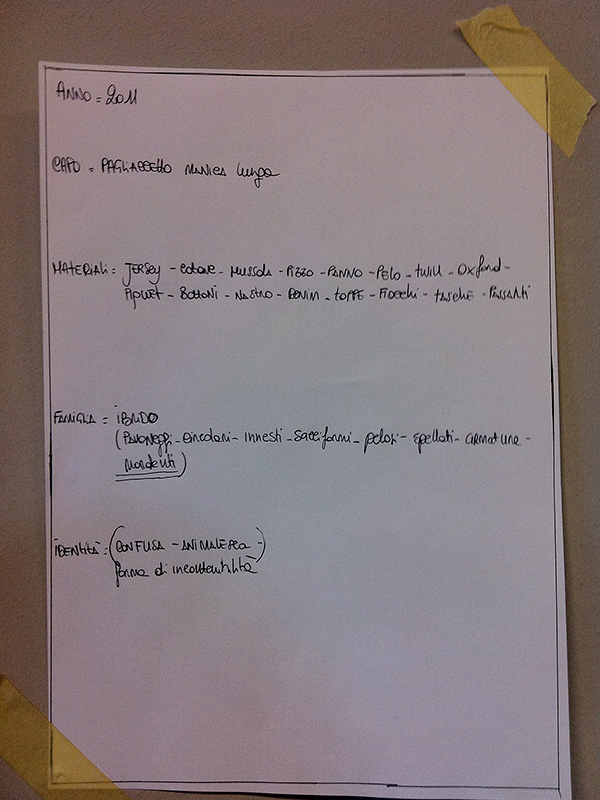 ANNO = 2011
CAPO = PAGLIACCETTO MANICA lunga
MATERIALI = JERSEY - COTONE - MUSSOLA - PIZZO - PANNO - PELO - TWILL - OXford -
PIQUET - BOTTONI - NASTRO - DENIM - TOPPE - FIOCCHI - TASCHE - PASSANTI
FAMIGLIA = IBRIDO
( - circolari - INNESTI - SACCIformi - pelosi - spellati - ARMATURE -
mordenti)
IDENTITÀ = (CONFUSA - ANIMALESCA -)
forma di incontenibilità